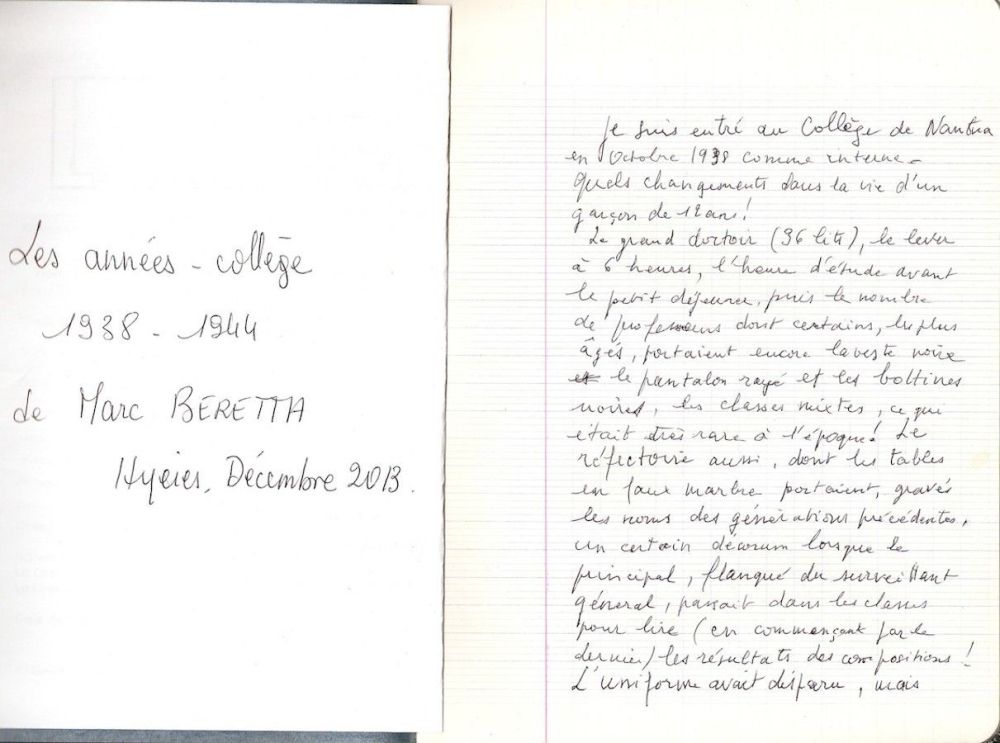 Les années - collège
1938 - 1944
de Marc BERETTA
Hyères, Décembre 2013.
Je suis entré au Collège de Nantua
en Octobre 1938 comme interne -
Quels changements dans la vie d'un
garçon de 12 ans !
Le grand dortoir (36 lits), le lever
à 6 heures, l'heure d'étude avant
le petit déjeuner, puis le nombre
de professeurs dont certains, les plus
âgés, portaient encore la veste noire
et le pantalon rayé et les bottines
noires, les classes mixtes, ce qui
était très rare à l'époque ! Le
réfectoire aussi, dont les tables
en faux marbre portaient, gravés
les noms des générations précédentes,
un certain décorum lorsque le
principal, flanqué du surveillant
général, passait dans les classes
pour lire (en commençant par le
dernier) les résultats des compositions !
L'uniforme avait disparu, mais